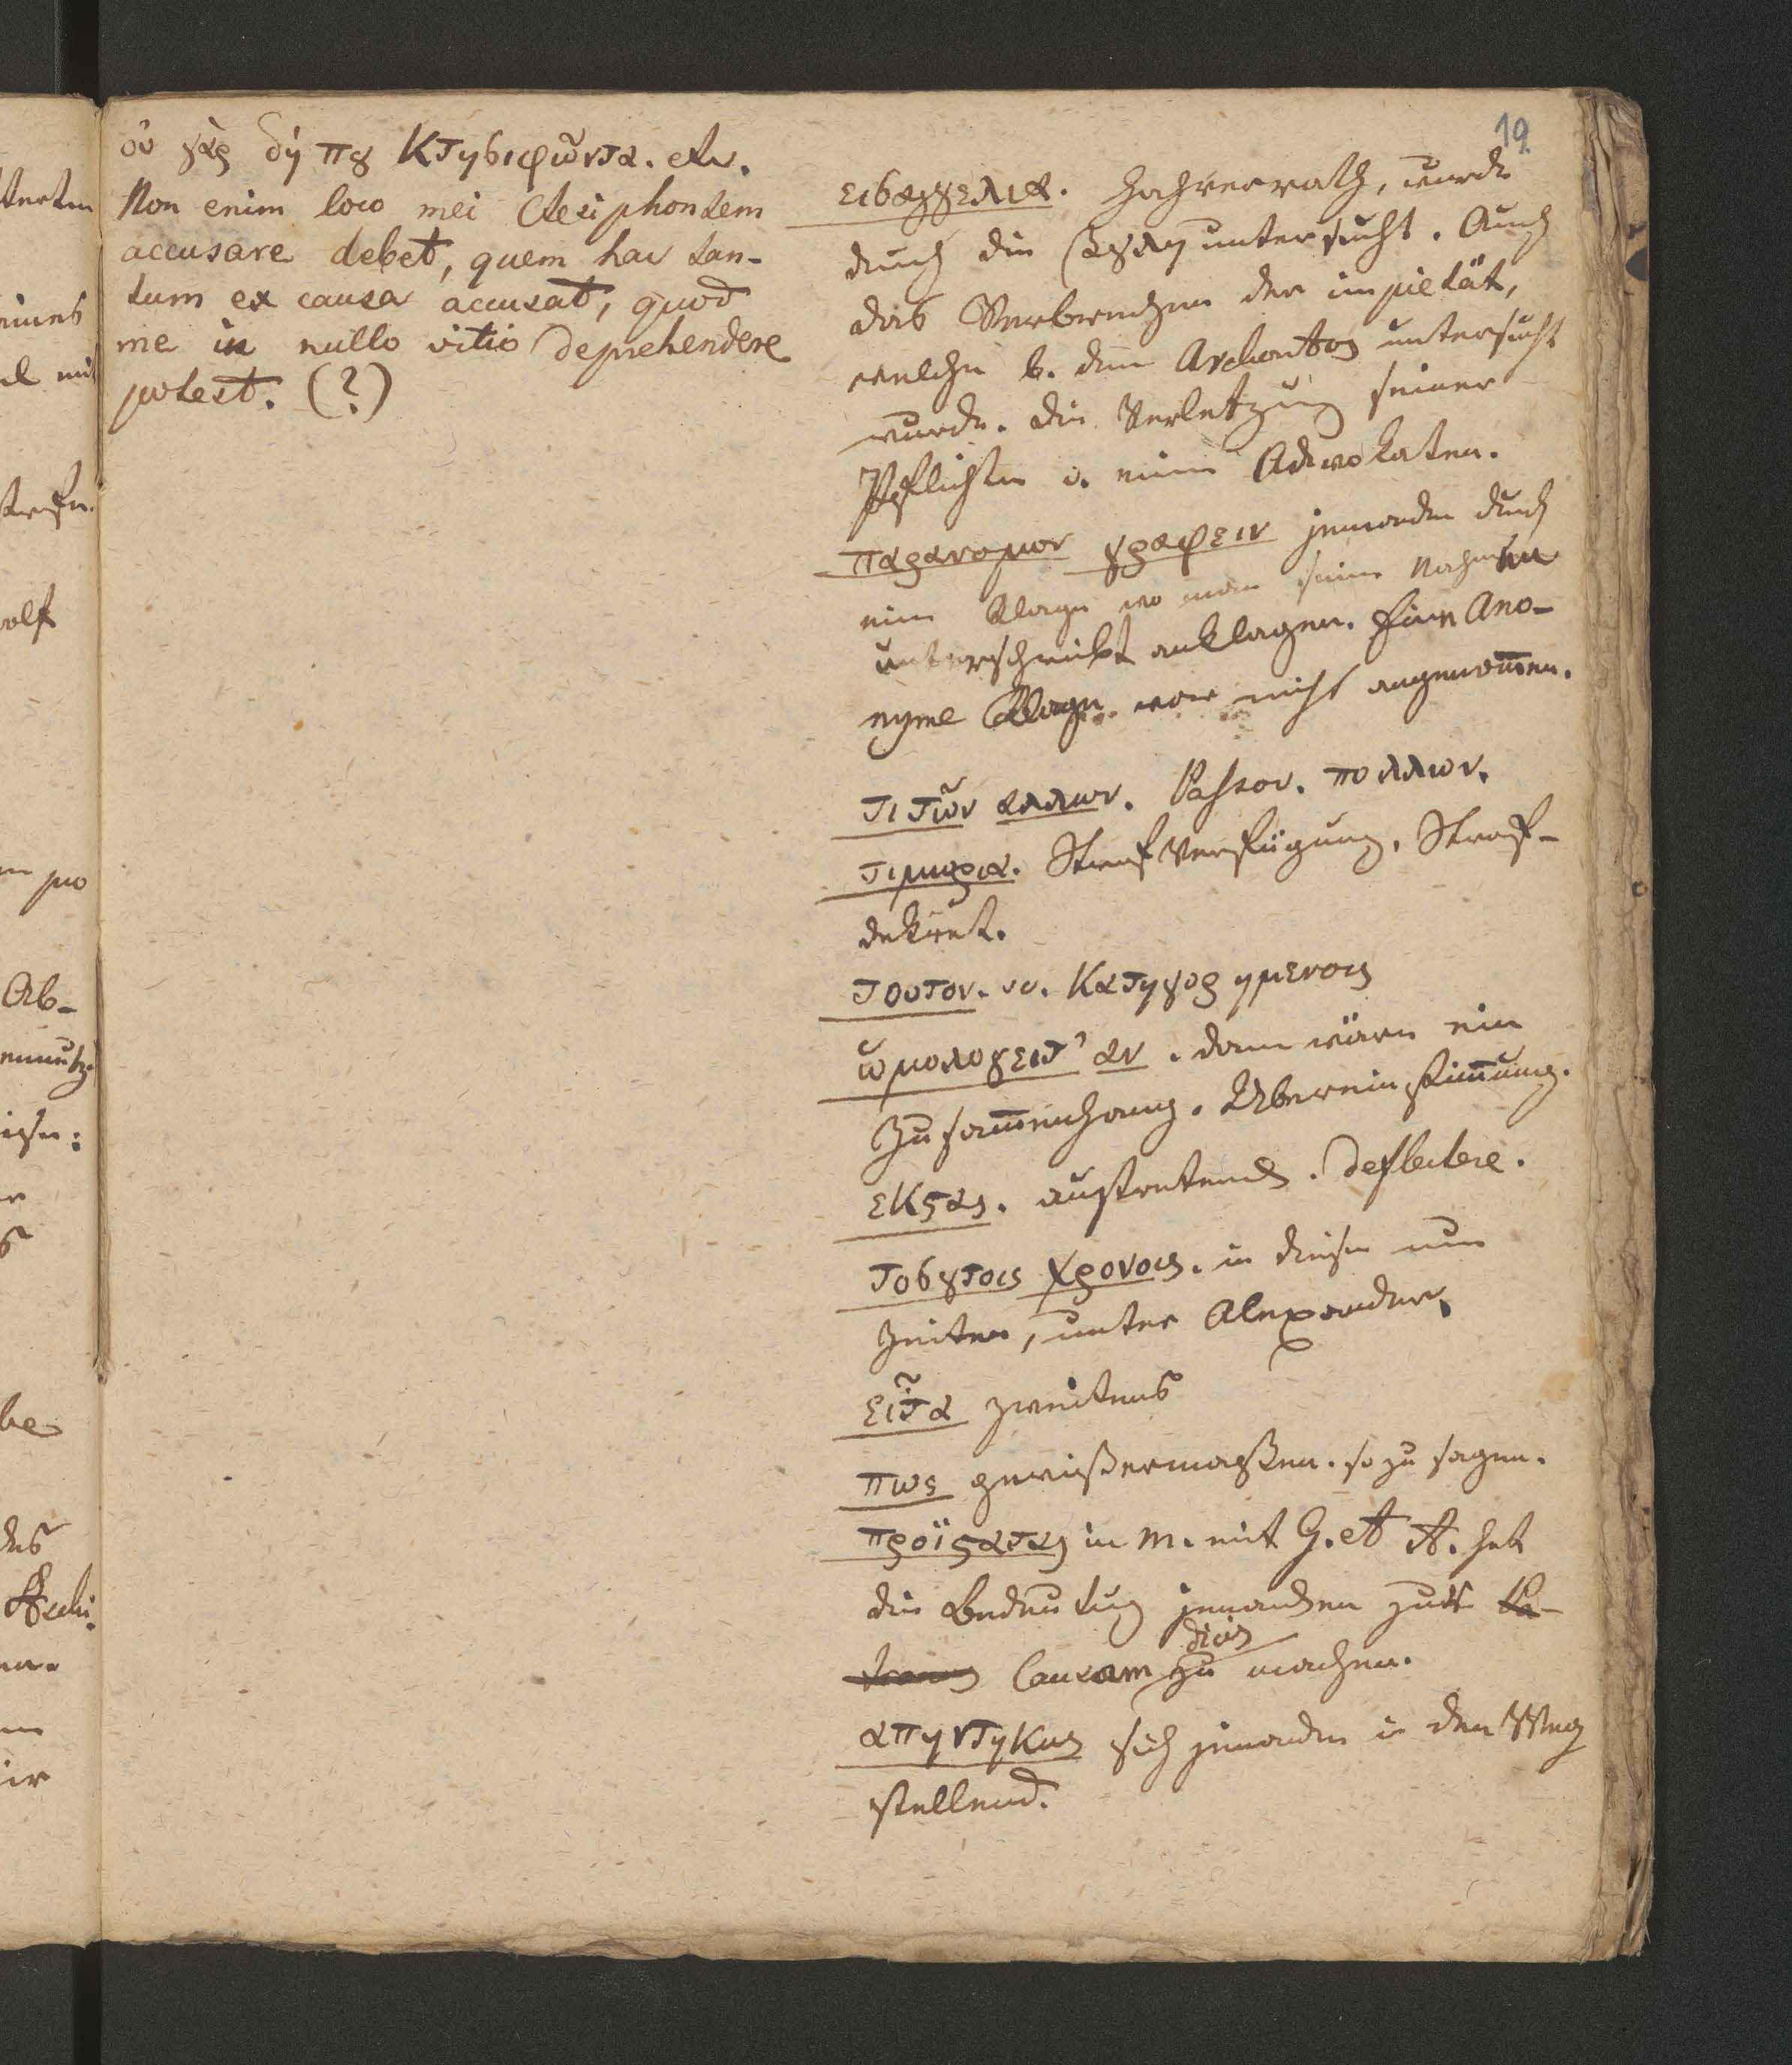 19
οὐ γὰρ δή που Κτησιφῶντα. etc.
Non enim loco mei Ctesiphontem
accusare debet, quem hac tan-
tum ex causa accusat, quod
me in nullo vitio deprehendere
potest. (?)
εισαγγελια. Hochverrath, wurde
durch die βουλη untersucht. Auch
das Verbrechen der impietät,
welche b. dem Archonten untersucht
wurde. Die Verletzung seiner
Pflichten v. einem Advokaten.
παρανομον γραφειν jemanden durch
eine Klage wo man seinen Nahmen
unterschreibt anklagen. Eine Ano-
nyme Klage war nicht angenom̅en.
τι τῶν αλλων. πολλων.
τιμωρια. Straf Verfügung, Straf-
dekret.
τουτον. Κατηγορημενοις
ὡμολογειτ' αν. dann wäre ein
Zusam̅enhang. Uebereinstim̅ung.
εκϛας. austretend. deflectere.
τοσουτοις χρονοις. in diesen nun
Zeiten, unter Alexander.
εἶτα zweitens
πως gewißermaßen. so zu sagen.
προϊϛαται in M. mit G. et A. hat
die Bedeutung jemanden zur
Causam zu machen.
απηντηκως sich jemanden in den Weg
stellend.